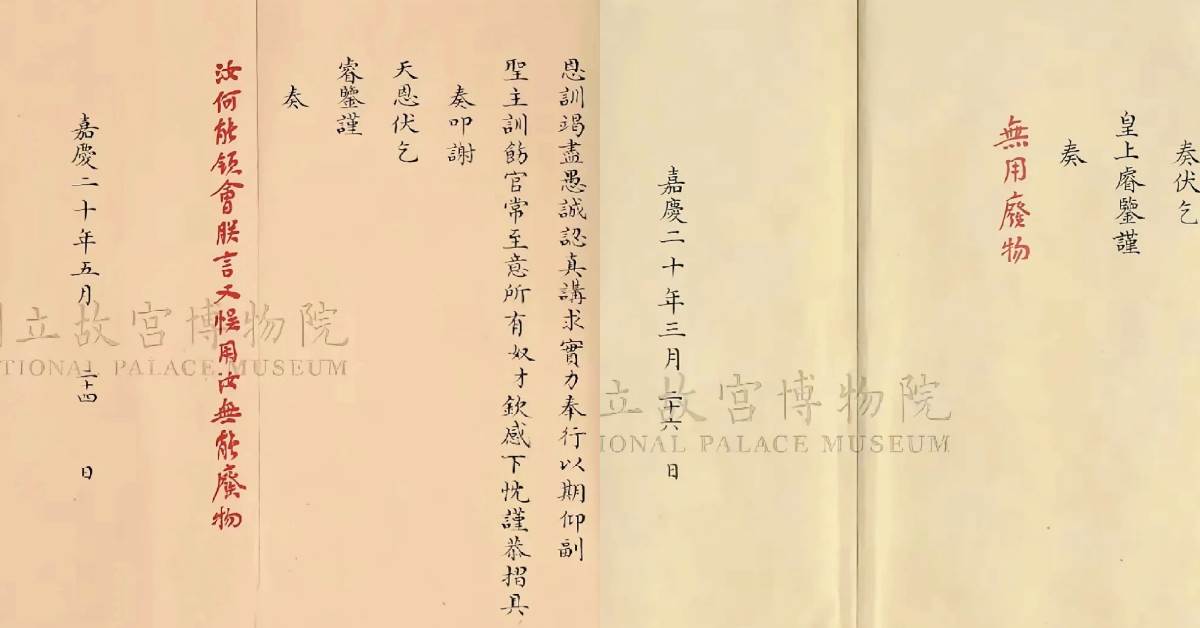 奏伏乞
皇上睿鑒謹
奏
無用廢物
嘉慶二十年三月二十六日
恩訓竭盡愚誠認真講求實力奉行以期仰副
聖主訓飭官常至意所有奴才欽感下忱謹恭摺具
奏叩謝
天恩伏乞
睿鑒謹
奏
汝何能領會朕言又悮用汝無能廢物
嘉慶二十年五月二十四日
國立故宮博物院
NATIONAL PALACE MUSEUM
立故宮博物院
IONAL PALACE MUSEUM